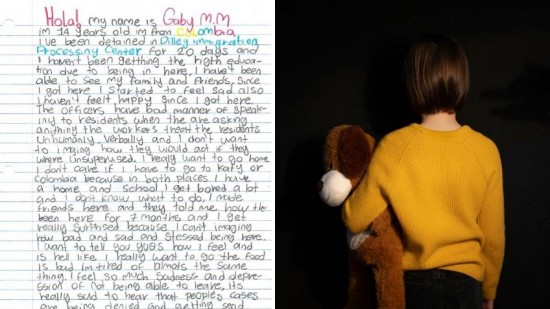 Hola! my name is Gaby M.M
im 14 years old im from Colombia,
I've been detained in Dilley immigration
Processing Center for 20 days and
I haven't been getting the right educa-
tion due to being in here, I haven't been
able to see my family and friends, since
I got here I started to feel sad also
I haven't feelt happy since I got here.
The officers have bad manner of speak-
ing to residents when the are asking
anithing the workers threat the residents
unhumanly, verbally and I don't want
to imaging how they would act if they
where unsupervised. I really want to go home
I don't care if I have to go to Katy or
Colombia because in both places I have
a home and school I get bored a lot
and I don't know what to do, I made
friends here and they told me how the
been here for 7 months and I get
really surprised because I can't imaging
how bad and sad and stessed being here.
I want to tell you guys how I feel and
is hell life I really want to go the food
is bad im tired of almots the same
thing, I feel so much sadness and depre-
ssion of not being able to leave, its
really sad to hear that people, cases
are being denied and getting send